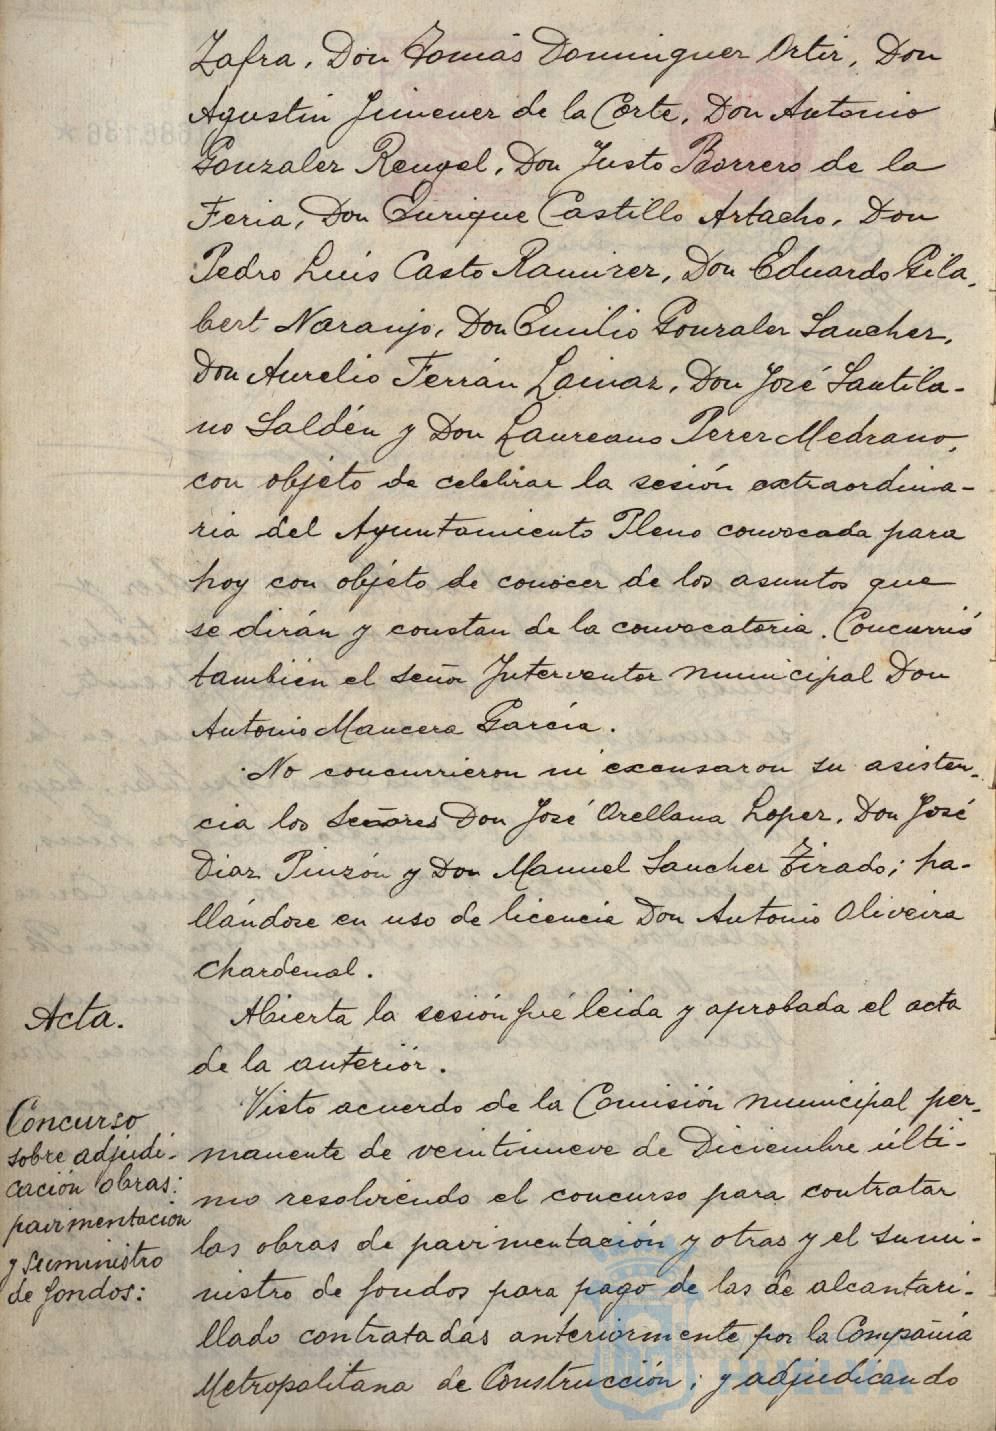 Zafra, Don Tomás Dominguez Ortiz, Don
Agustin Jimenez de la Corte, Don Antonio
Gonzalez Rengel, Don Justo Borrero de la
Feria, Don Enrique Castillo Artacho, Don
Pedro Luis Casto Ramirez, Don Eduardo Gila-
bert Naranjo, Don Emilio Gonzalez Sanchez,
Don Aurelio Ferrán Lainaz, Don José Santila-
no Saldén y Don Laureano Perez Medrano,
con objeto de celebrar la sesión extraordina-
ria del Ayuntamiento Pleno convocada para
hoy con objeto de conocer de los asuntos que
se dirán y constan de la convocatoria. Concurrió
también el señor Interventor municipal Don
Antonio Mancera García.
No concurrieron ni excusaron su asisten-
cia los Señores Don José Orellana Lopez, Don José
Diaz Pinzón y Don Manuel Sanchez Tirado; ha-
llándose en uso de licencia Don Antonio Oliveira
Chardenal.
Acta.
Abierta la sesión fué leida y aprobada el acta
de la anteriór.
Concurso
sobre adjudi-
cación obras:
pavimentación
y suministro
de fondos:
Visto acuerdo de la Comisión municipal per-
manente de veintinueve de Diciembre últi-
mo resolviendo el concurso para contratar
las obras de pavimentación y otras y el sumi-
nistro de fondos para pago de las de alcantari-
llado contratadas anteriormente por la Compañia
Metropolitana de Construcción; y adjudicando
HUELVA